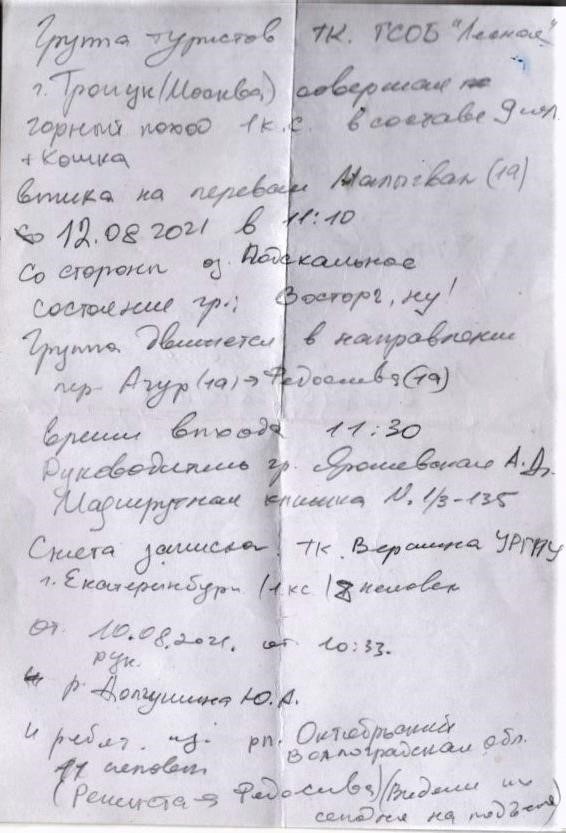 Группа туристов ТК. ГСОБ "Лесная"
г. Троицк (Москва) совершая
горный поход 1 к.с. в составе 9 чел.
+ кошка
вышла на перевал (1а)
12.08.2021 в 11:10
со стороны оз. Подскальное
состояние гр.: Восторг, ну!
Группа движется в направлении
пер. Ачур (1а) → Федосеева (1а)
время выхода 11:30
Руководитель гр. Ярошевская А.
Маршрутная книжка N. 1/3-135
Снята записка ТК. Вершина УРГПУ
г. Екатеринбург (1 кс) 8 человек
от 10.08.2021. от 10:33.
рук.
Долгушина Ю.А.
и ребят из рп. Октябрьский
Волгоградская обл.
11 человек
(Рениста → Федосеева) (Видели их
сегодня на подъёме)